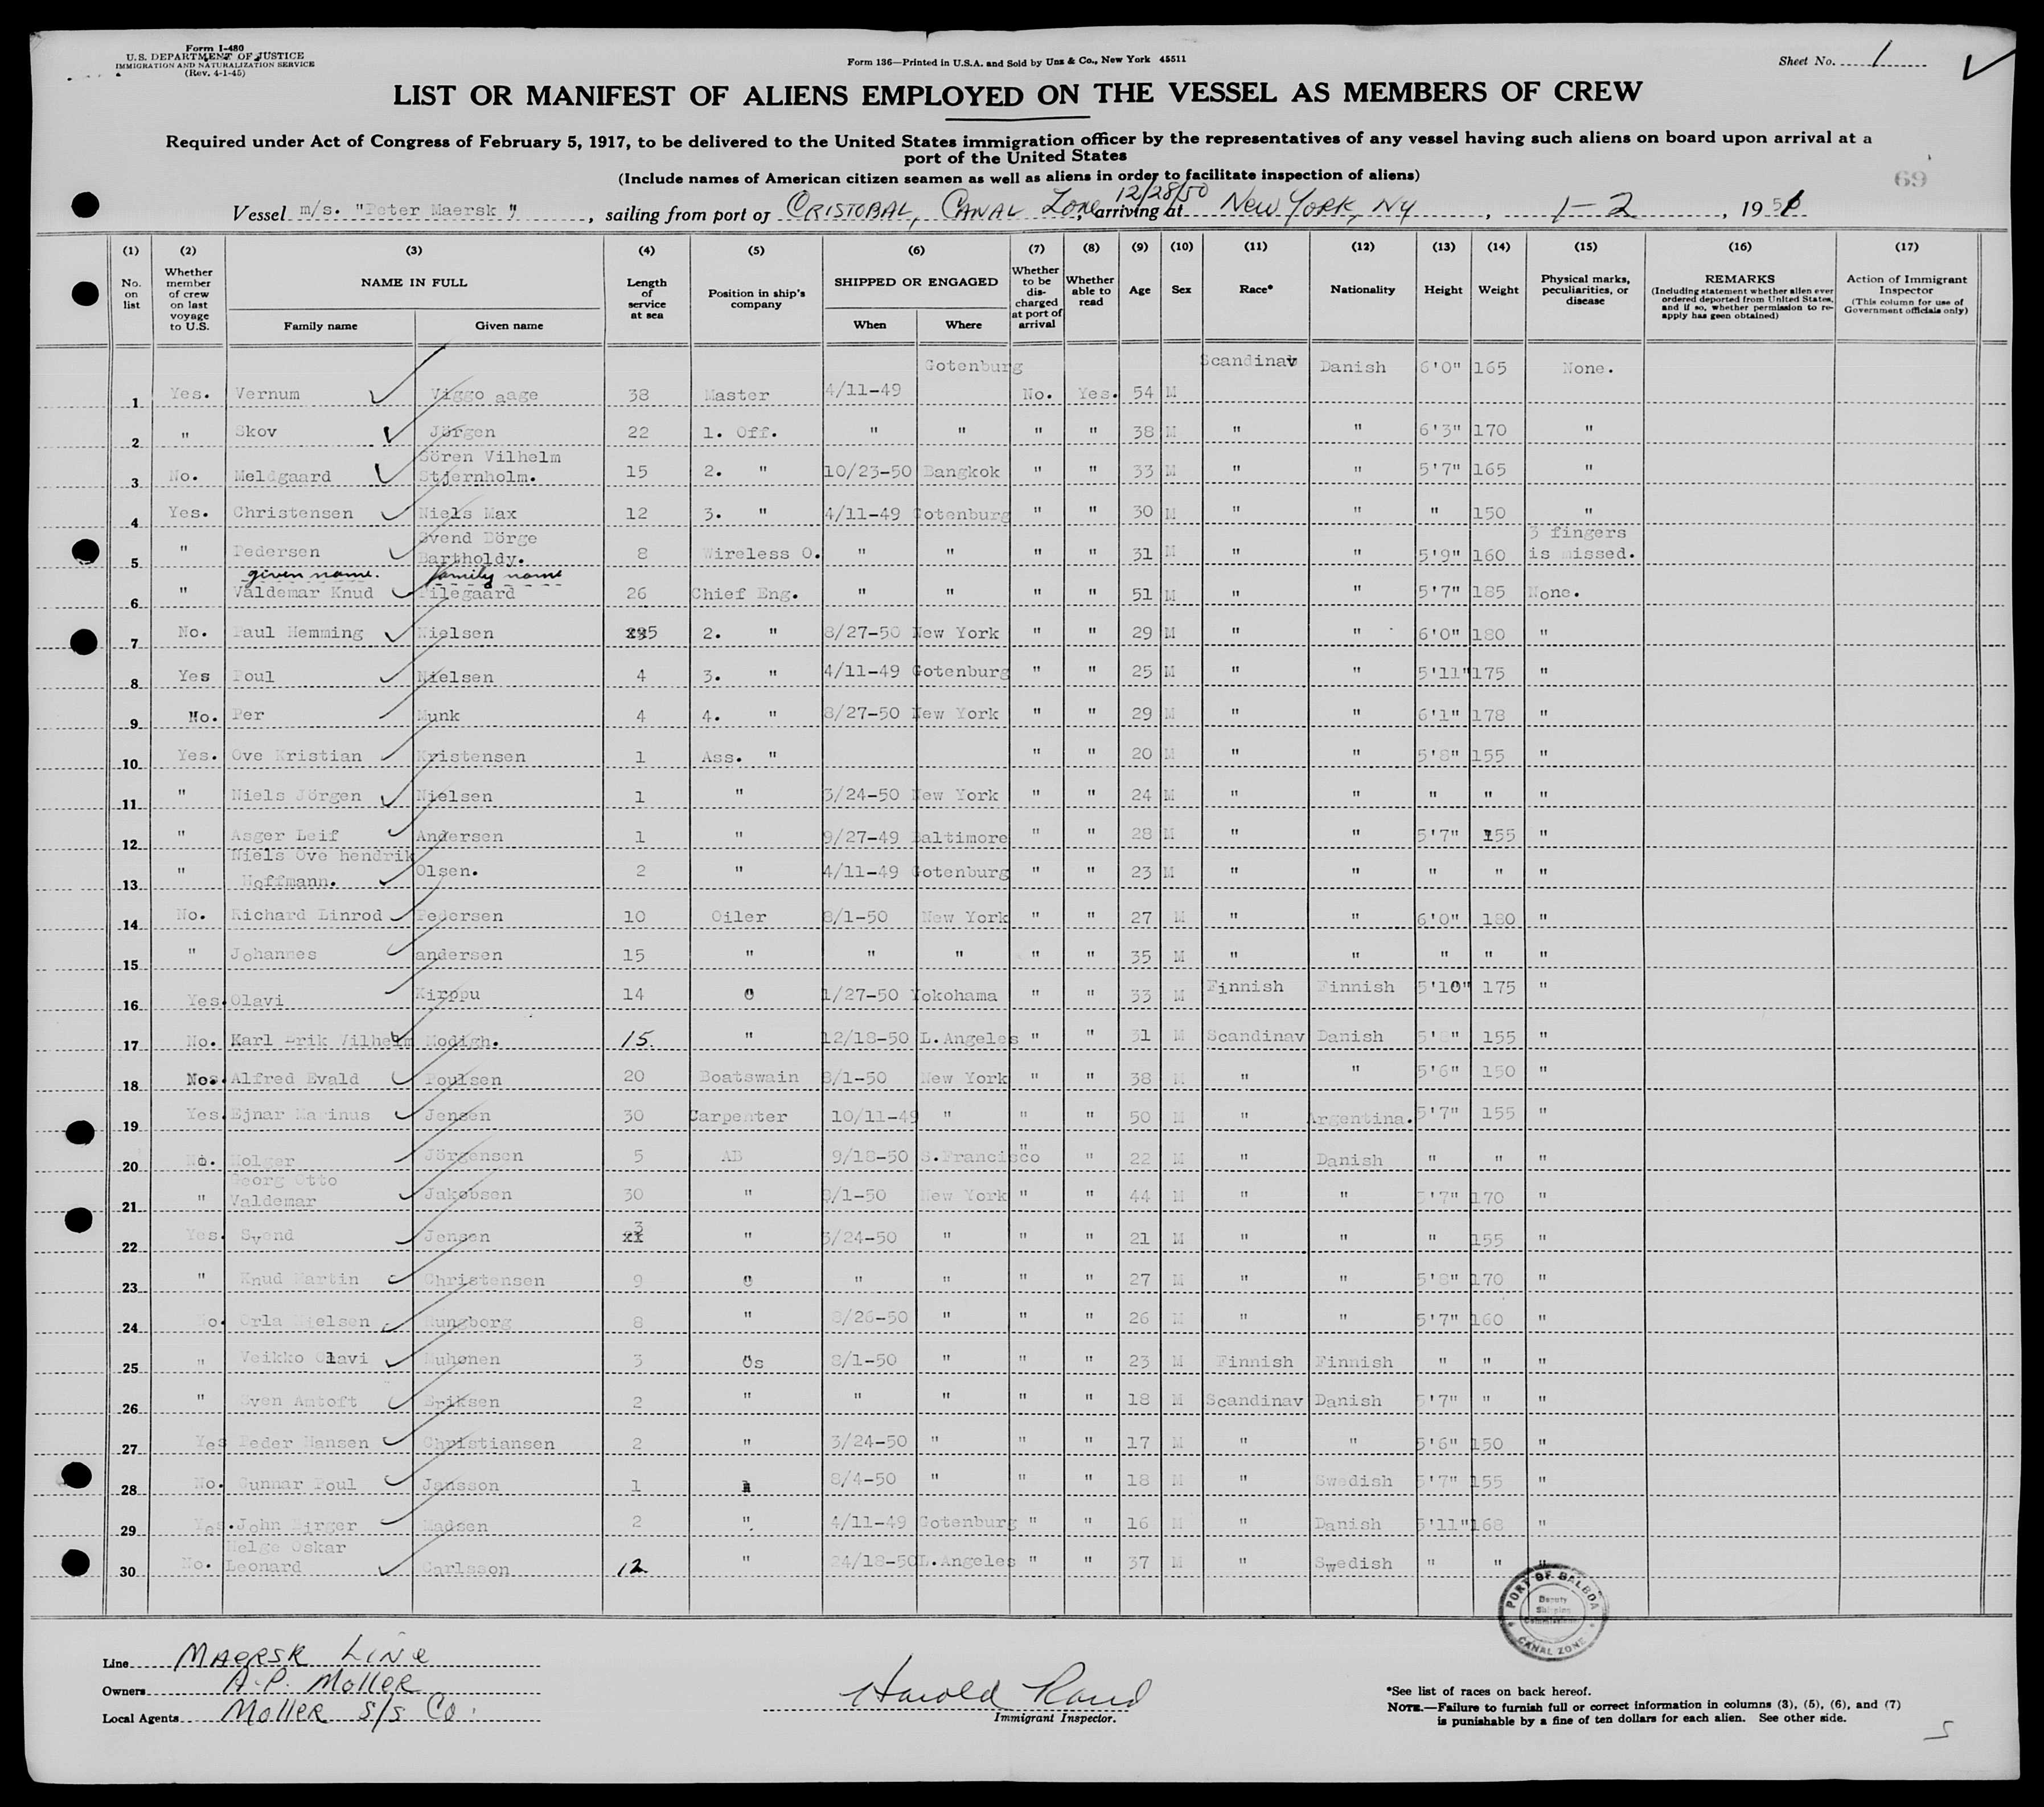 Form I-480
U.S. DEPARTMENT OF JUSTICE
IMMIGRATION AND NATURALIZATION SERVICE
(Rev. 4-1-45)
Form 136—Printed in U.S.A. and Sold by Unz & Co., New York 45511
Sheet No. 1
LIST OR MANIFEST OF ALIENS EMPLOYED ON THE VESSEL AS MEMBERS OF CREW
Required under Act of Congress of February 5, 1917, to be delivered to the United States immigration officer by the representatives of any vessel having such aliens on board upon arrival at a
port of the United States
(Include names of American citizen seamen as well as aliens in order to facilitate inspection of aliens)
69
12/28/50
Vessel m/s. "Peter Maersk", sailing from port of CRISTOBAL, CANAL ZONE, arriving at NEW YORK, NY, 1-2, 1951
(1) (2) (3) (4) (5) (6) (7) (8) (9) (10) (11) (12) (13) (14) (15) (16) (17)
No. on list
Whether member of crew on last voyage to U.S.
NAME IN FULL
Family name Given name
Length of service at sea
Position in ship's company
SHIPPED OR ENGAGED
When Where
Whether to be discharged at port of arrival
Whether able to read
Age Sex Race* Nationality Height Weight
Physical marks, peculiarities, or disease
REMARKS
(Including statement whether alien ever ordered deported from United States, and if so, whether permission to re-apply has geen obtained)
Action of Immigrant Inspector
(This column for use of Government officials only)
1 Yes. Vernum Viggo aage 38 Master 4/11-49 Gotenburg No. Yes. 54 M Scandinav Danish 6'0" 165 None.
2 " Skov Jörgen 22 1. Off. " " " " 38 M " " 6'3" 170 "
3 No. Meldgaard Sören Vilhelm Stjernholm. 15 2. " 10/23-50 Bangkok " " 33 M " " 5'7" 165 "
4 Yes. Christensen Niels Max 12 3. " 4/11-49 Gotenburg " " 30 M " " " 150 "
5 " Pedersen Svend Börge Bartholdy. 8 Wireless O. " " " " 31 M " " 5'9" 160 3 fingers is missed.
given name. family name
6 " Valdemar Knud Pilegaard 26 Chief Eng. " " " " 51 M " " 5'7" 185 None.
7 No. Paul Hemming Nielsen 5 2. " 8/27-50 New York " " 29 M " " 6'0" 180 "
8 Yes Poul Nielsen 4 3. " 4/11-49 Gotenburg " " 25 M " " 5'11" 175 "
9 No. Per Munk 4 4. " 8/27-50 New York " " 29 M " " 6'1" 178 "
10 Yes. Ove Kristian Kristensen 1 Ass. " " " 20 M " " 5'8" 155 "
11 " Niels Jörgen Nielsen 1 " 3/24-50 New York " " 24 M " " " " "
12 " Asger Leif Andersen 1 " 9/27-49 Baltimore " " 28 M " " 5'7" 155 "
13 " Niels Ove hendrik Hoffmann. Olsen. 2 " 4/11-49 Gotenburg " " 23 M " " " " "
14 No. Richard Linrod Pedersen 10 Oiler 8/1-50 New York " " 27 M " " 6'0" 180 "
15 " Johannes andersen 15 " " " " " 35 M " " " " "
16 Yes. Olavi Kirppu 14 " 1/27-50 Yokohama " " 33 M Finnish Finnish 5'10" 175 "
17 No. Karl Erik Vilhelm Modigh. 15. " 12/18-50 L.Angeles " " 31 M Scandinav Danish 5'8" 155 "
18 No. Alfred Evald Poulsen 20 Boatswain 8/1-50 New York " " 38 M " " 5'6" 150 "
19 Yes. Ejnar Marinus Jensen 30 Carpenter 10/11-49 " " " 50 M " Argentina. 5'7" 155 "
20 No. Holger Jörgensen 5 AB 9/18-50 S.Francisco " " 22 M " Danish " " "
21 " Georg Otto Valdemar Jakobsen 30 " 8/1-50 New York " " 44 M " " 5'7" 170 "
22 Yes. Svend Jensen 3 " 3/24-50 " " " 21 M " " " 155 "
23 " Knud Martin Christensen 9 " " " " " 27 M " " 5'8" 170 "
24 No. Orla Nielsen Rungborg 8 " 8/26-50 " " " 26 M " " 5'7" 160 "
25 " Veikko Olavi Muhonen 3 Os 8/1-50 " " " 23 M Finnish Finnish " " "
26 " Sven Antoft Eriksen 2 " " " " " 18 M Scandinav Danish 5'7" " "
27 Yes Peder Hansen Christiansen 2 " 3/24-50 " " " 17 M " " 5'6" 150 "
28 No. Gunnar Poul Jansson 1 8/4-50 " " " 18 M " Swedish 5'7" 155 "
29 Yes. John Birger Madsen 2 " 4/11-49 Gotenburg " " 16 M " Danish 5'11" 168 "
30 No. Helge Oskar Leonard Carlsson 12 " 24/18-50 L.Angeles " " 37 M " Swedish " " "
PORT OF BALBOA
Deputy Shipping Commissioner
CANAL ZONE
Line MAERSK LINE
Owners A.P. MOLLER
Local Agents MOLLER S/S Co.
Harold Rand
Immigrant Inspector.
*See list of races on back hereof.
NOTE.—Failure to furnish full or correct information in columns (3), (5), (6), and (7)
is punishable by a fine of ten dollars for each alien. See other side.
5